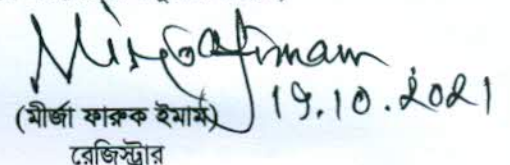 19.10.2021
(মীর্জা ফারুক ইমাম)
রেজিস্ট্রার